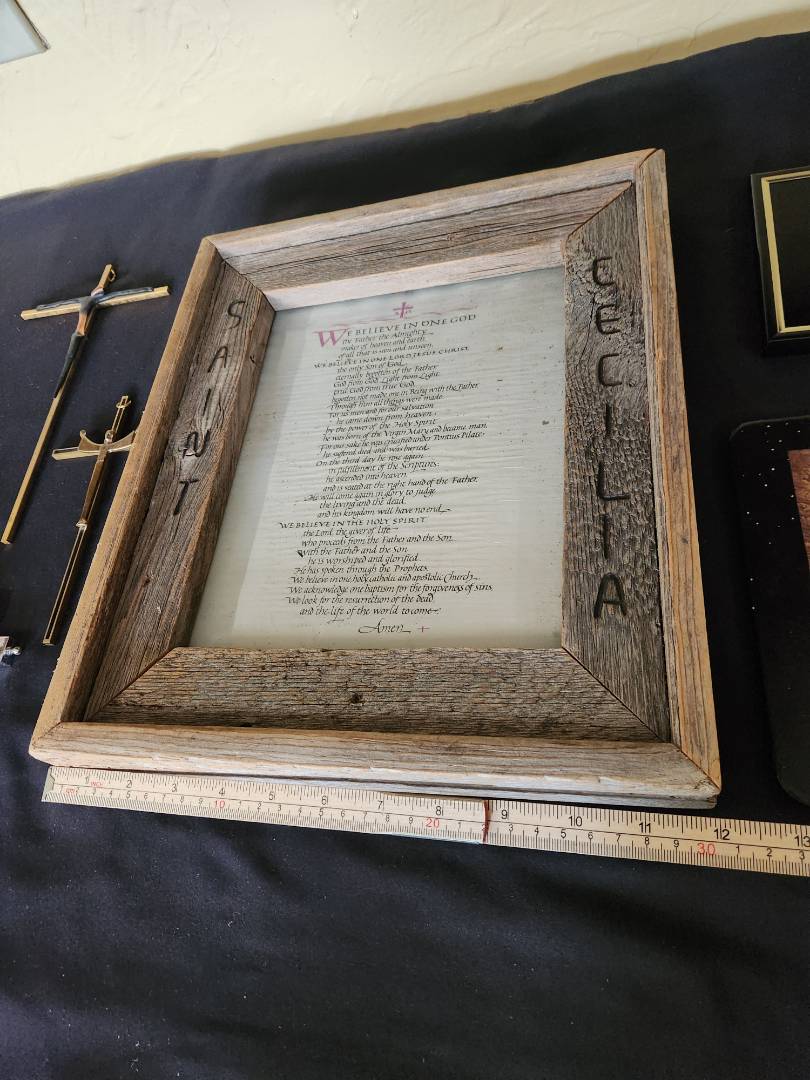 SAINT
CECILIA
WE BELIEVE IN ONE GOD
the Father, the Almighty,
maker of heaven and earth,
of all that is seen and unseen.
WE BELIEVE IN ONE LORD JESUS CHRIST,
the only Son of God,
eternally begotten of the Father,
God from God, Light from Light,
true God from true God,
begotten, not made, one in Being with the Father.
Through him all things were made.
For us men and for our salvation
he came down from heaven:
by the power of the Holy Spirit
he was born of the Virgin Mary, and became man.
For our sake he was crucified under Pontius Pilate;
he suffered, died, and was buried.
On the third day he rose again
in fulfillment of the Scriptures;
he ascended into heaven
and is seated at the right hand of the Father.
He will come again in glory to judge
the living and the dead,
and his kingdom will have no end.
WE BELIEVE IN THE HOLY SPIRIT
the Lord, the giver of life,
who proceeds from the Father and the Son.
With the Father and the Son
he is worshiped and glorified.
He has spoken through the Prophets.
We believe in one holy catholic and apostolic Church.
We acknowledge one baptism for the forgiveness of sins.
We look for the resurrection of the dead,
and the life of the world to come.
Amen
1 2 3 4 5 6 7 8 9 10 11 12 13
10 20 30